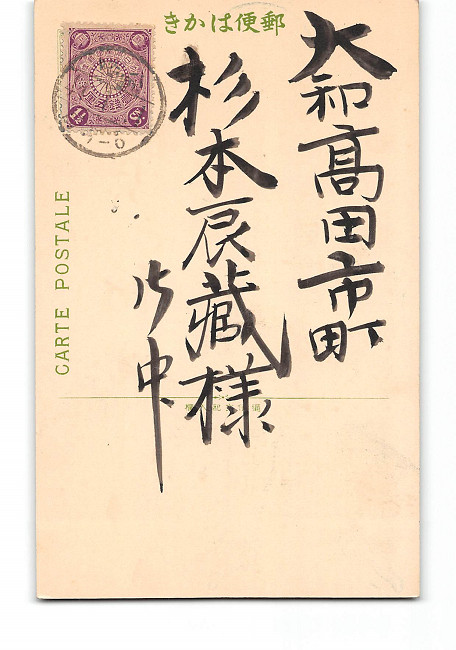 郵便はかき
大和高田市町
杉本辰藏様
御中
CARTE POSTALE
1½ Sn.